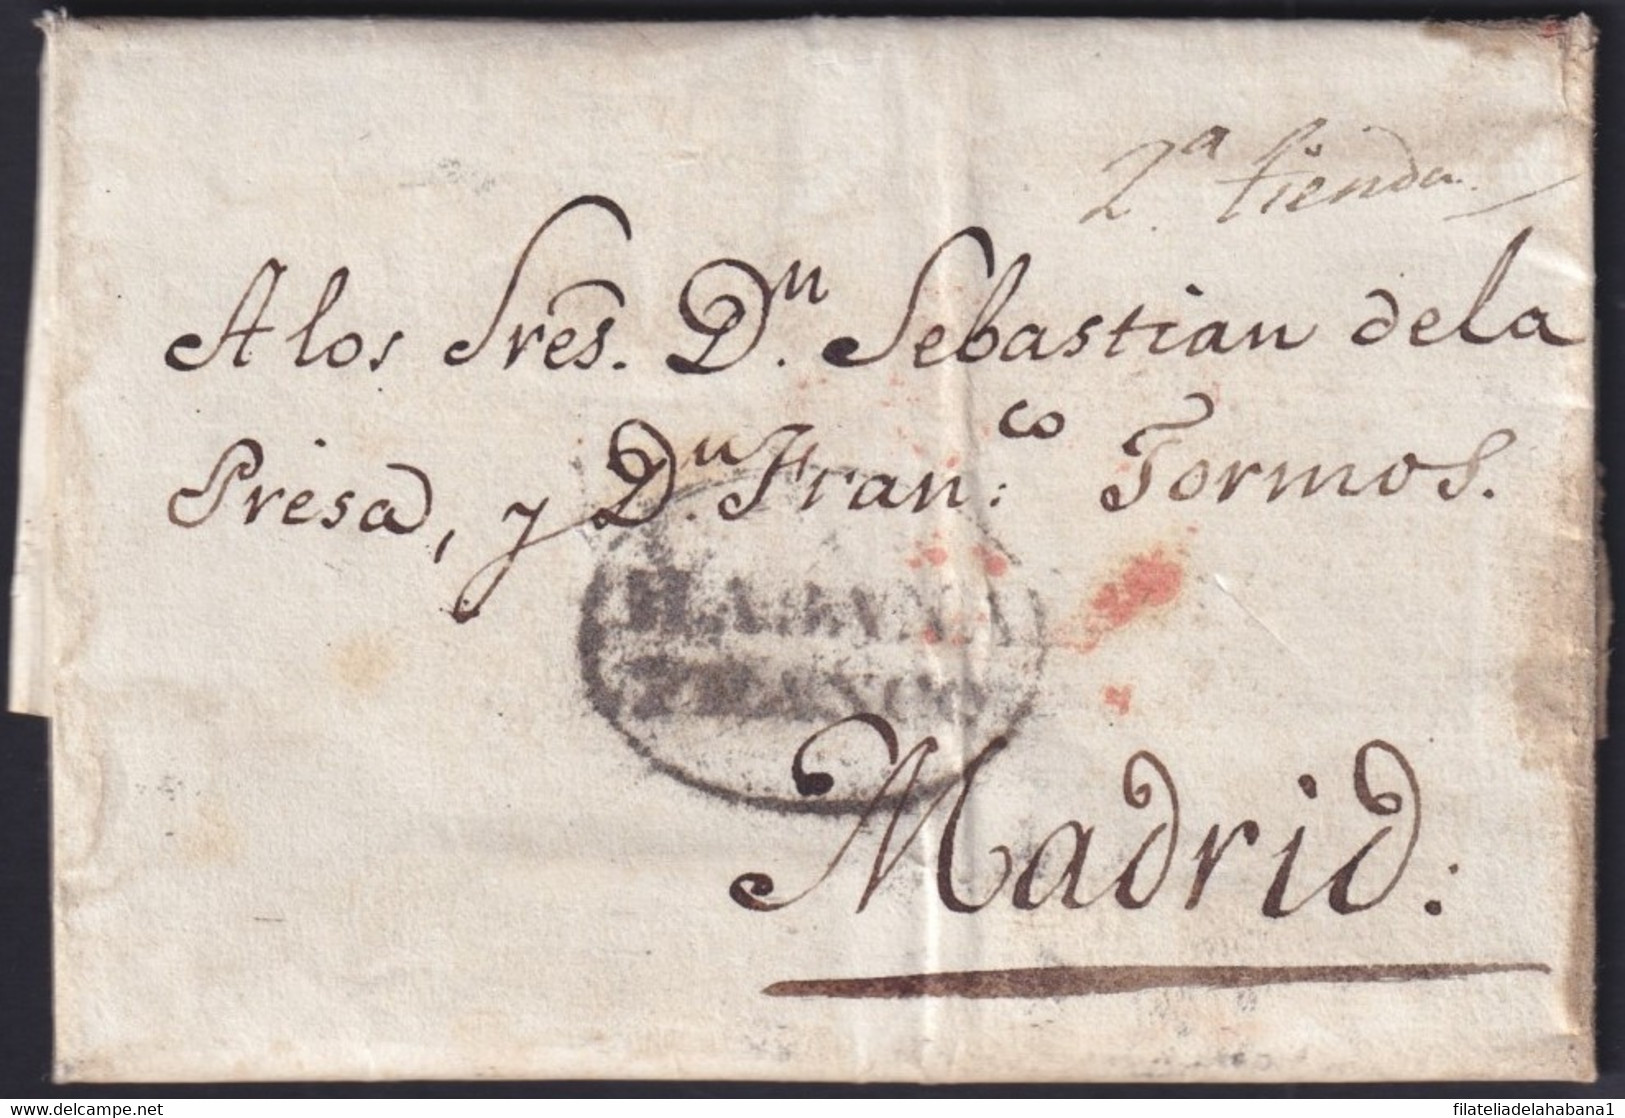 2.ª tienda
A los Sres. D.ⁿ Sebastian de la
Presa, y D.ⁿ Fran.ᶜᵒ Tormos.
HABANA
FRANCO
Madrid:
delcampe.net
filateliadelahabana1